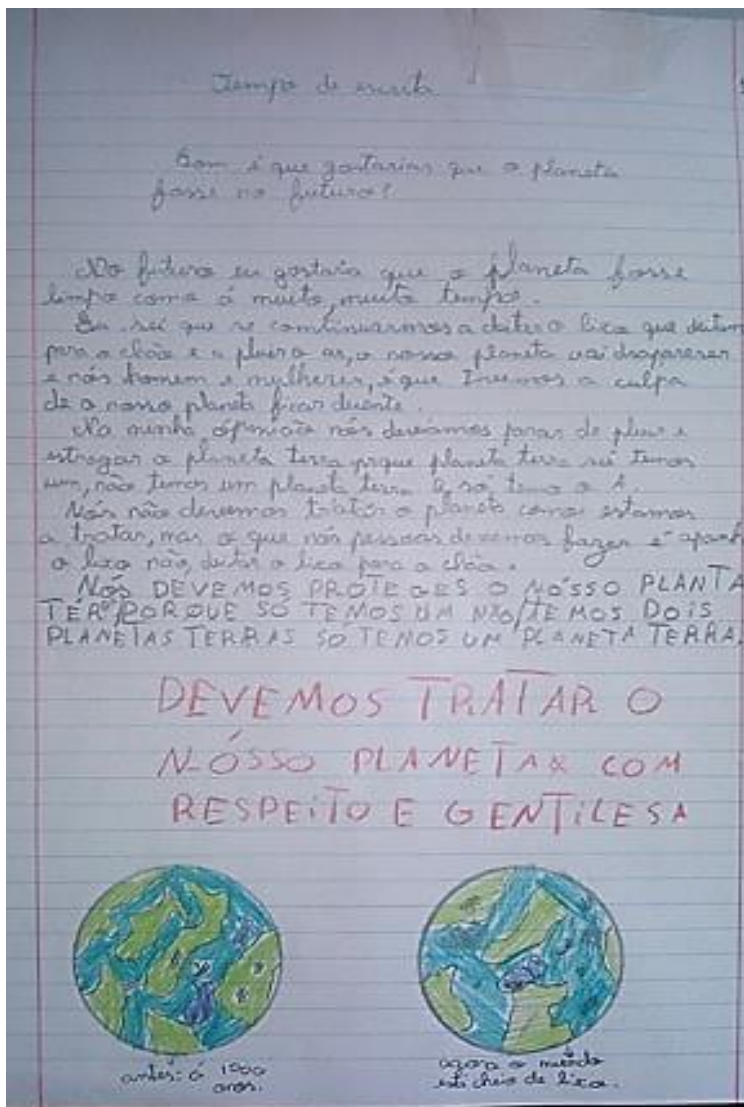 Tempo de escrita
Com é que gostarias que o planeta
fosse no futuro?
No futuro eu gostaria que o planeta fosse
limpo como á muito, muito tempo.
Eu sei que se continuarmos a deitar o lixo que deitam
para o chão e a pluir o ar, o nosso planeta vai
e nós homem e mulheres, é que a culpa
de o nosso planeta ficar duente.
Na minha opinião nós deviamos parar de pluir e
estragar o planeta terra prque planeta terra só temos
um, não temos um planeta terra B, só temo o A.
Nós não devemos tratar o planeta como estamos
a tratar, mas o que nós pessoas devemos fazer é
o lixo não, deitar o lixo para o chão.
NÓS DEVEMOS PROTEGES O NÓSSO PLANTA
PORQUE SÓ TEMOS UM NÃO TEMOS DOIS
PLANETAS TERRAS SÓ TEMOS UM PLANETA TERRA.
DEVEMOS TRATAR O
NÓSSO PLANETA COM
RESPEITO E GENTILESA
antes: á 1000 agora o mundo
anos. está cheio de lixo.